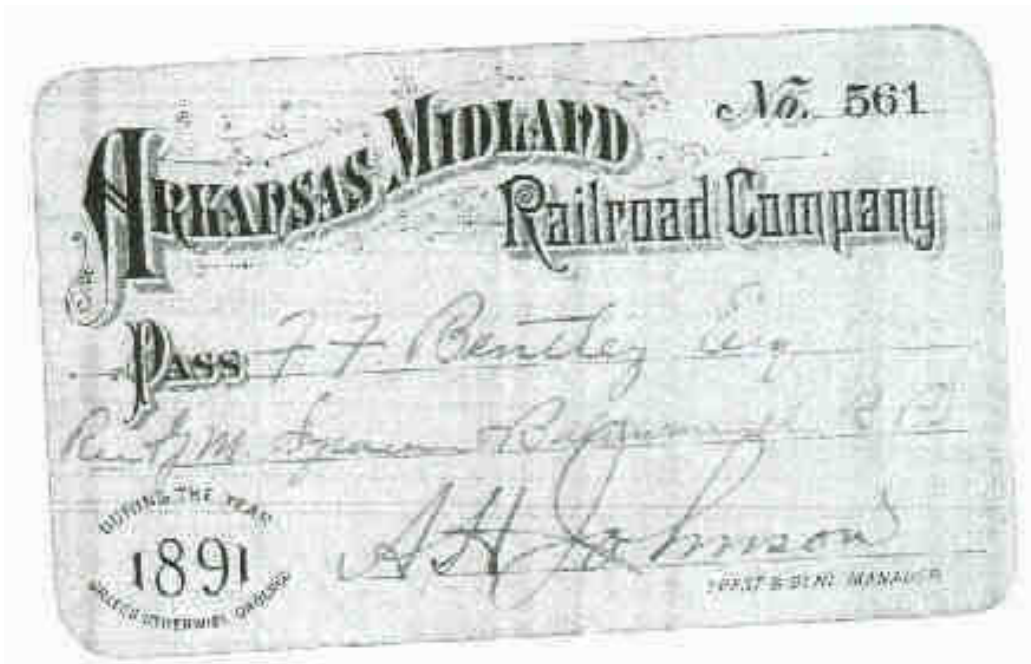 No. 561
ARKANSAS MIDLAND
Railroad Company
PASS F F Bentley Esq
A H Johnson
DURING THE YEAR
1891
UNLESS OTHERWISE ORDERED
PREST & GENL MANAGER